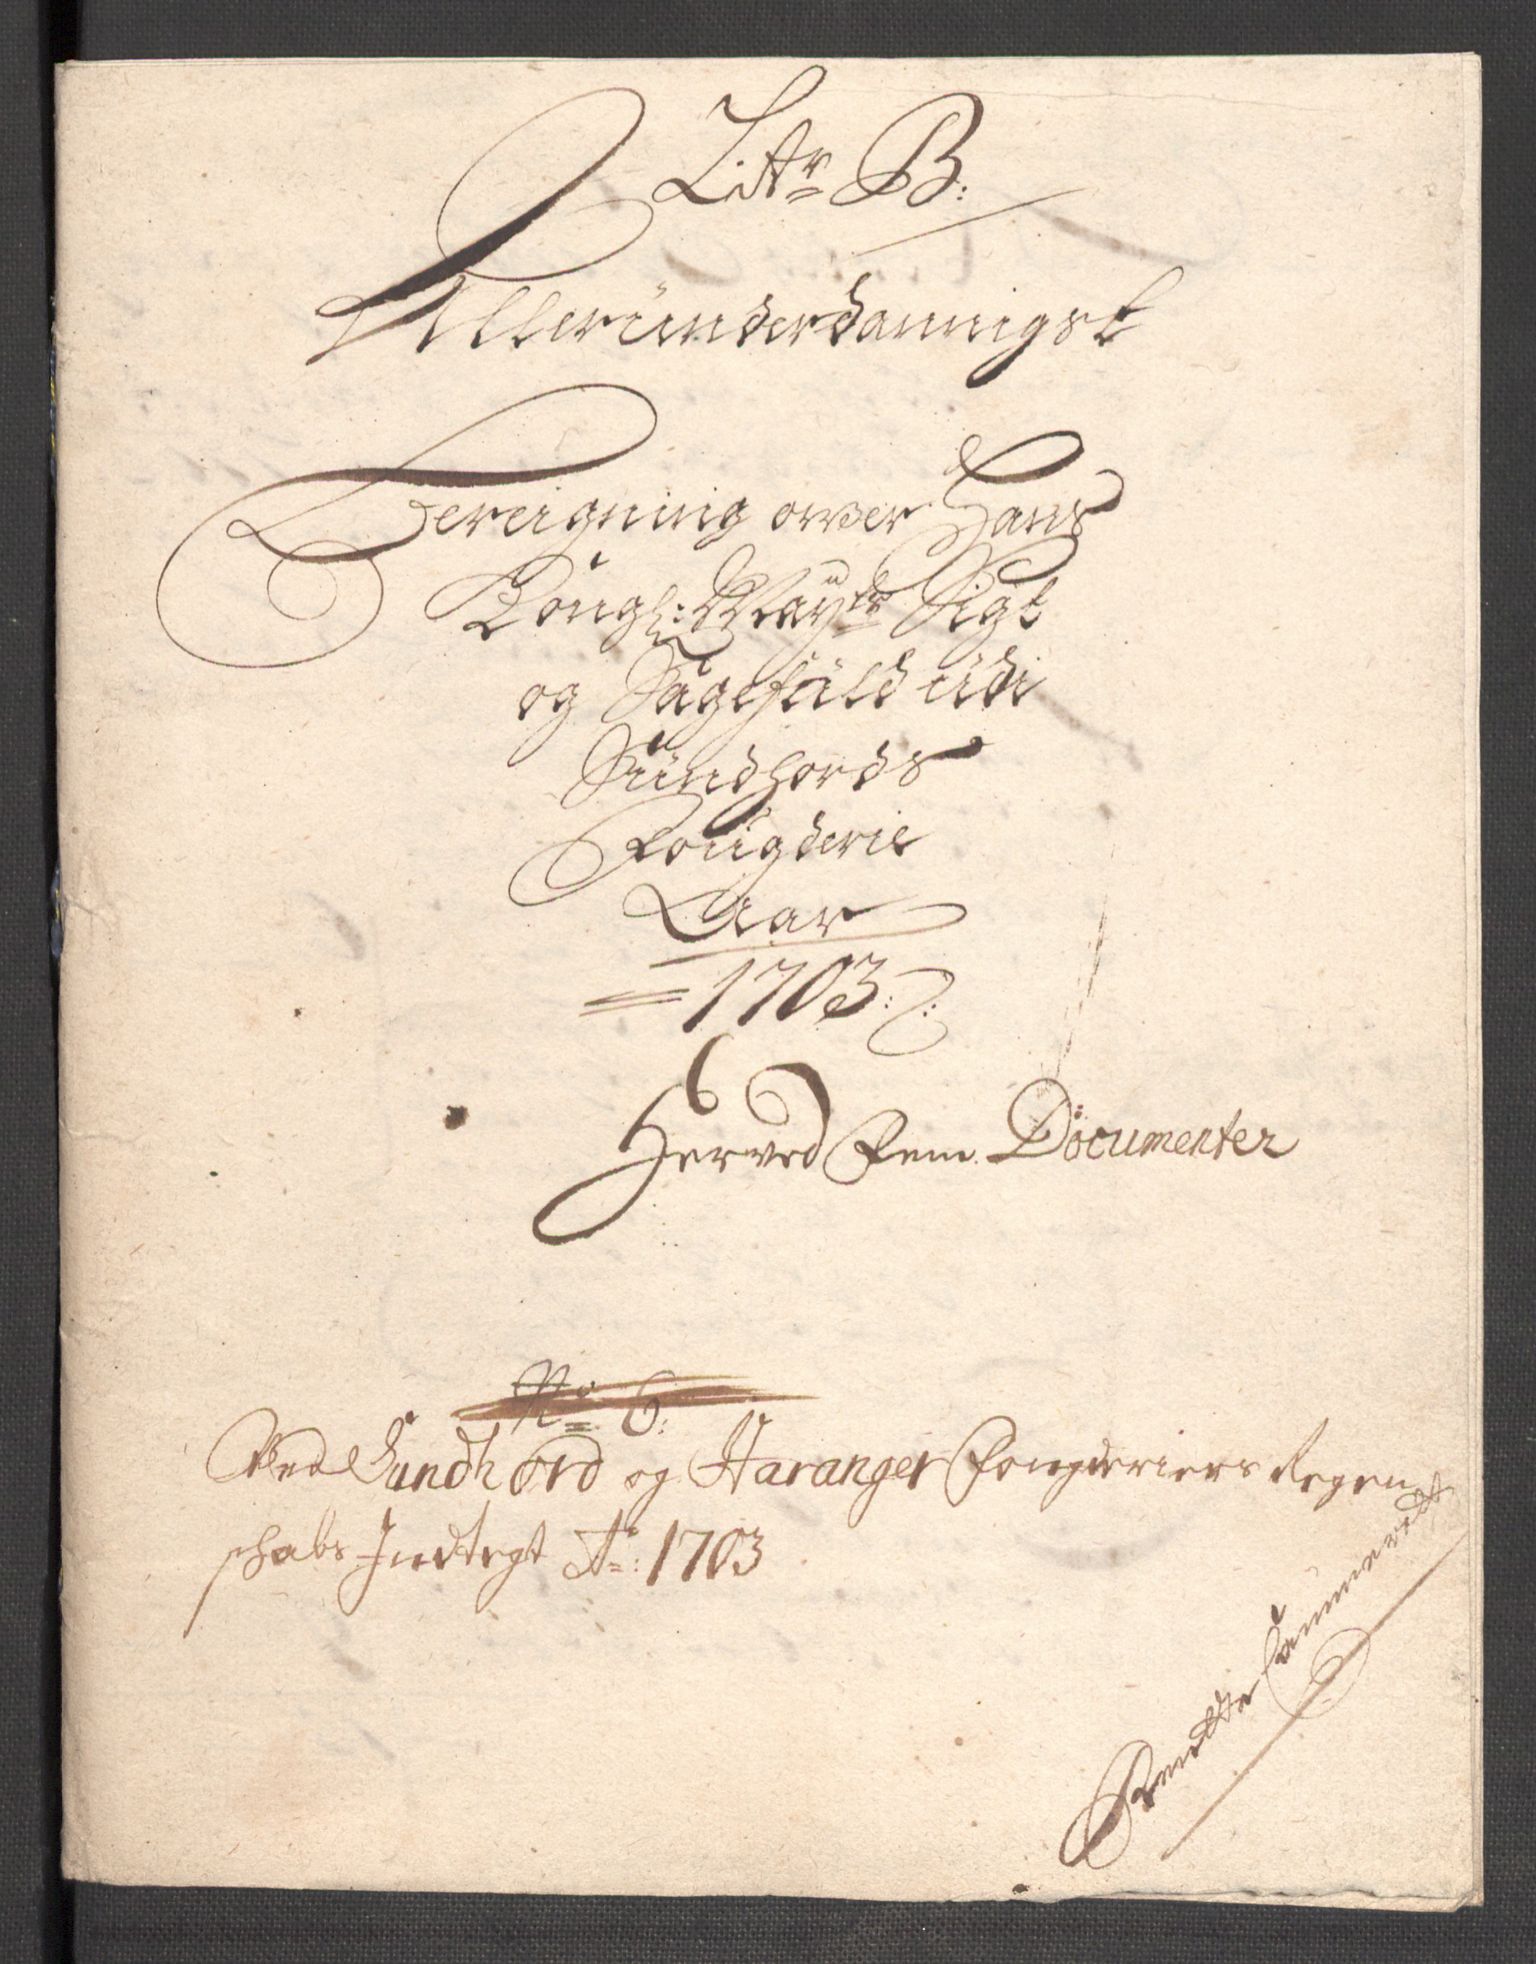 Litr B:
Alleründerdannigst
Bereigning over Hans
Kongl: Mayts Sigt
og Sagefald udi
Sundhords
Fougderie
Aar
1703
Herved Fem Documenter
No 6:
Ved Sundhord og Haranger Fougderiers Regen
schabs Indtegt Ao: 1703
Rendte Cammeret